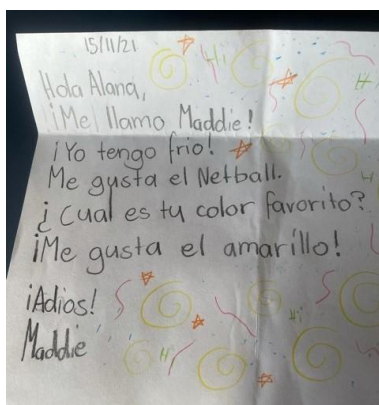 15/11/21
Hi
Hola Alana,
¡Me llamo Maddie!
¡Yo tengo frio!
Me gusta el Netball.
¿Cual es tu color favorito?
¡Me gusta el amaríllo!
¡Adios!
Hi
Maddie